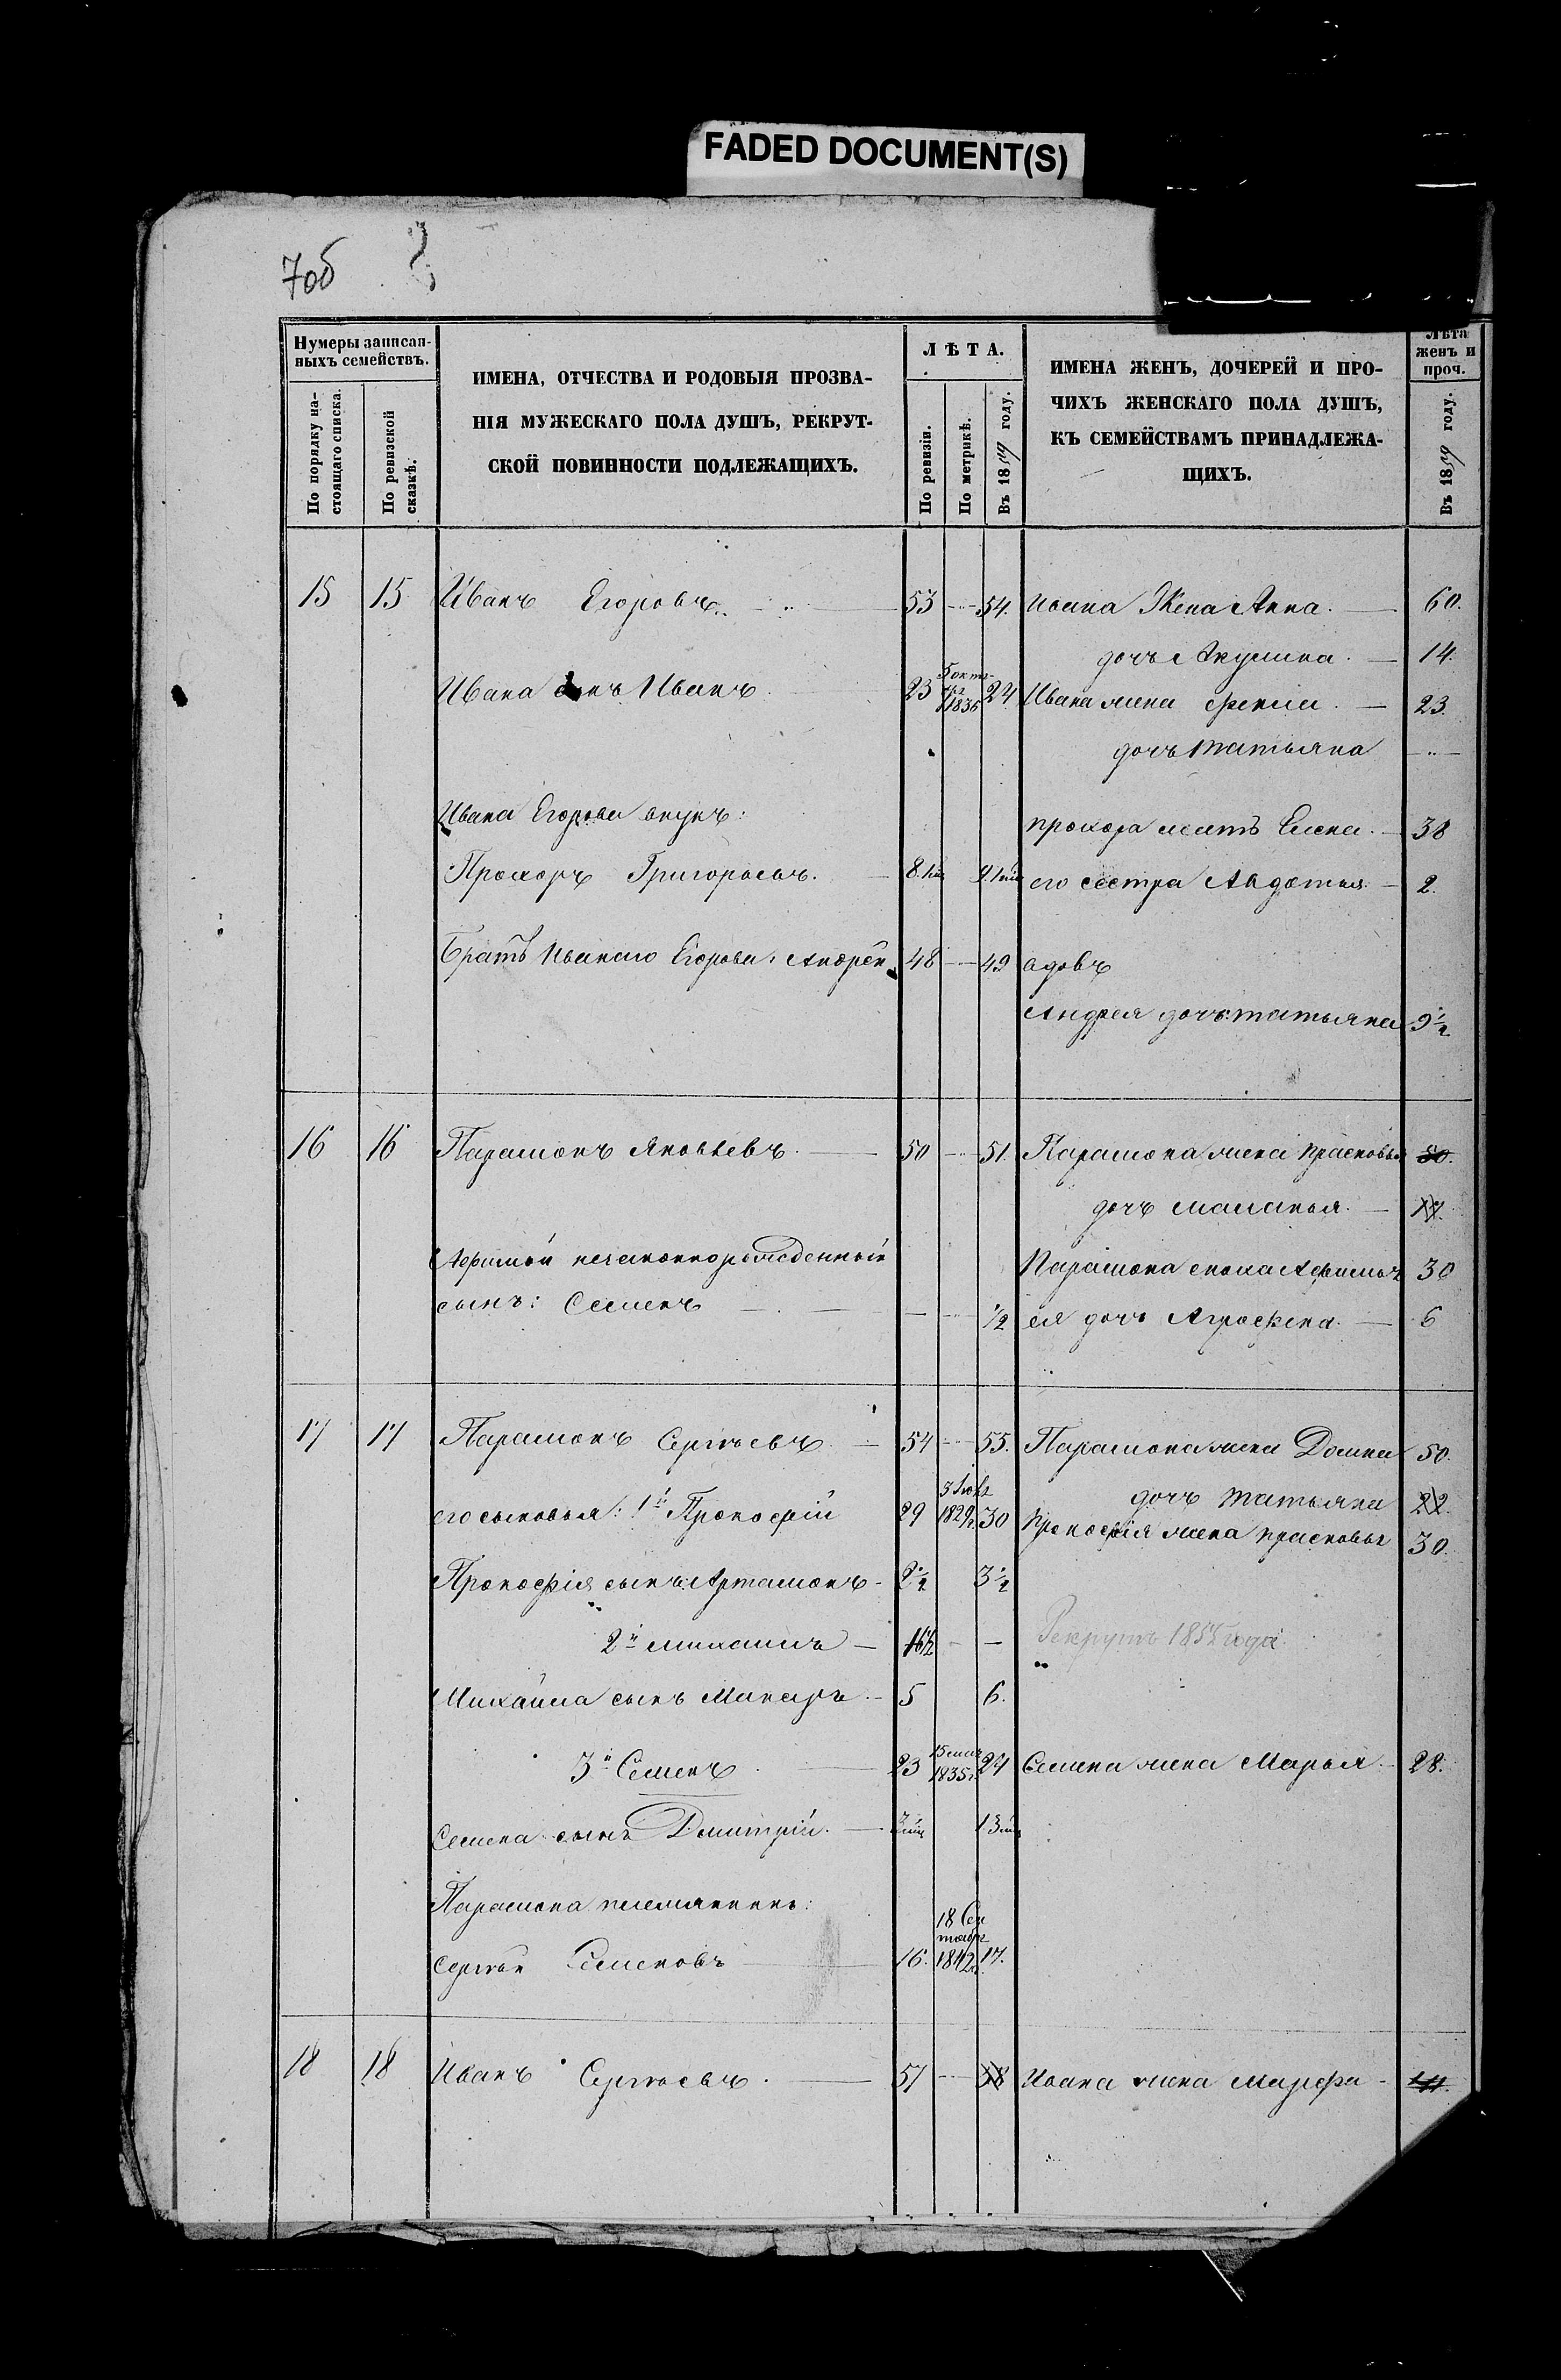 FADED DOCUMENT(S)
7об
Нумеры записан-
ныхъ семействъ.
По порядку на-
стоящаго списка.
По ревизской
сказкѣ.
ИМЕНА, ОТЧЕСТВА И РОДОВЫЯ ПРОЗВА-
НІЯ МУЖЕСКАГО ПОЛА ДУШЪ, РЕКРУТ-
СКОЙ ПОВИННОСТИ ПОДЛЕЖАЩИХЪ.
ЛѢТА.
По ревизіи.
По метрикѣ.
Въ 1859 году.
ИМЕНА ЖЕНЪ, ДОЧЕРЕЙ И ПРО-
ЧИХЪ ЖЕНСКАГО ПОЛА ДУШЪ,
КЪ СЕМЕЙСТВАМЪ ПРИНАДЛЕЖА-
ЩИХЪ.
Лѣта
женъ и
проч.
Въ 1859 году.
15 15 Иванъ Егоровъ. 53 54. Ивана Жена Анна. 60.
дочь Акулина. 14.
Ивана сынъ Иванъ. 23 5 окт 1835 24 Ивана жена Фекла. 23.
дочь Татьяна
Ивана Егорова внукъ: Прохора мать Елена. 38
Прохоръ Григорьевъ. 8. 9. его сестра Авдотья 2.
Братъ Иванаго Егорова, Андрей 48 49 вдовъ
Андрея дочь Татьяна 9½
16 16 Парамонъ Яковлевъ. 50 51. Парамона жена Прасковья 50.
дочь Маланья. 17.
Афимьи незаконнорожденный Парамона сноха Афимья 30
сынъ: Семенъ ½ ея дочь Аграфена. 6
17 17 Парамонъ Сергѣевъ 54 55. Парамона жена Домна 50.
дочь Татьяна 22.
его сыновья: 1й Прокофій 29 3 1829 30 Прокофія жена Прасковья 30.
Прокофія сынъ Артамонъ 2½ 3½
2й Михаилъ 16½ Рекрутъ 1854 года
Михайла сынъ Макаръ. 5 6.
3й Семенъ 23 1835 24 Семена жена Марья 28.
Семена сынъ Дмитрій. 1
Парамона племянникъ:
Сергѣй Семеновъ 16. 18 Сен тября 1842 17.
18 18 Иванъ Сергѣевъ. 57 58 Ивана жена Марфа